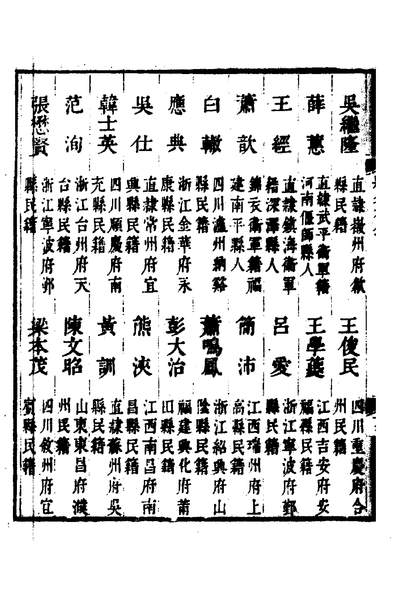 吳繼隆 直隸徽州府歙縣民籍 王俊民 四川重慶府合州民籍
薛蕙 直隸武平衛軍籍河南偃師縣人 王學夔 江西吉安府安福縣民籍
王經 直隸鎮海衛軍籍深澤縣人 呂愛 浙江寧波府鄞縣民籍
蕭歆 錦衣衛軍籍福建南平縣人 簡沛 江西瑞州府上高縣民籍
白轍 四川瀘州納谿縣民籍 蕭鳴鳳 浙江紹興府山陰縣民籍
應典 浙江金華府永康縣民籍 彭大治 福建興化府莆田縣民籍
吳仕 直隸常州府宜興縣民籍 熊浹 江西南昌府南昌縣民籍
韓士英 四川順慶府南充縣民籍 黃訓 直隸蘇州府吳縣民籍
范洵 浙江台州府天台縣民籍 陳文昭 山東東昌府濮州民籍
張懋賢 浙江寧波府鄞縣民籍 梁本茂 四川敘州府宜賓縣民籍